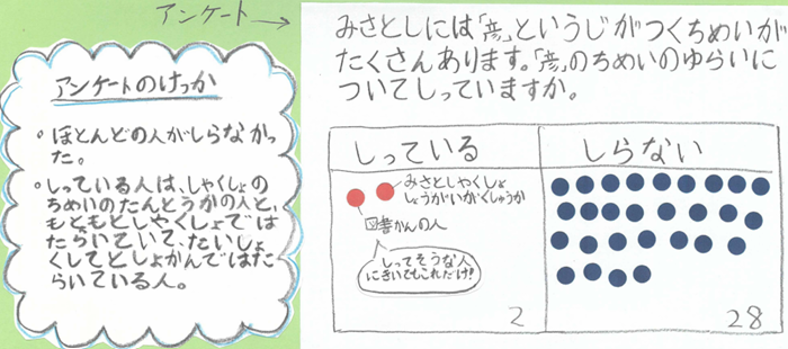 アンケート→
アンケートのけっか
・ほとんどの人がしらなかっ
た。
・しっている人は、しゃくしょの
ちめいのたんとうかの人と、
もともとしやくしょでは
たらいていて、たいしょ
くしてとしょかんではた
らいている人。
みさとしには「彦」というじがつくちめいが
たくさんあります。「彦」のちめいのゆらいに
ついてしっていますか。
しっている
しらない
みさとしやくしょ
しょうがいがくしゅうか
図書かんの人
しってそうな人
にきいてもこれだけ!
2
28